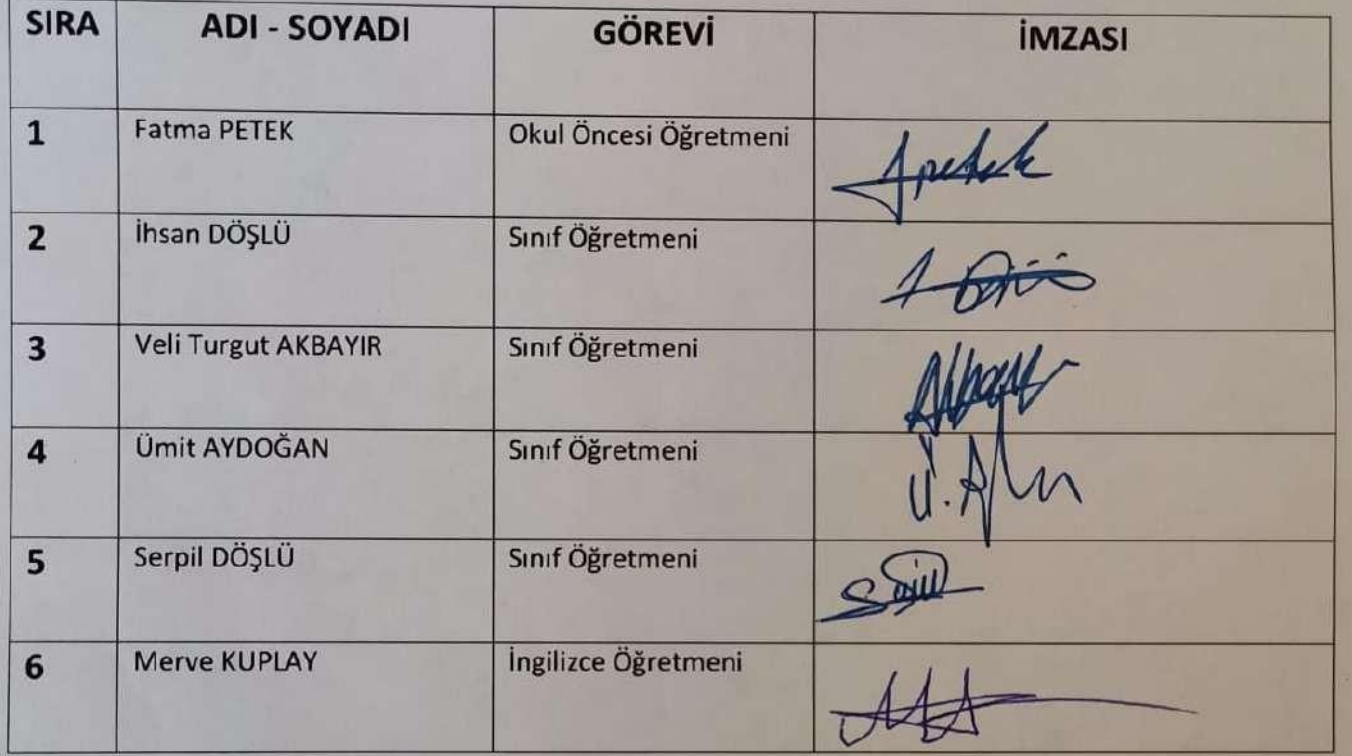 SIRA ADI - SOYADI GÖREVİ İMZASI
1 Fatma PETEK Okul Öncesi Öğretmeni
2 İhsan DÖŞLÜ Sınıf Öğretmeni
3 Veli Turgut AKBAYIR Sınıf Öğretmeni
4 Ümit AYDOĞAN Sınıf Öğretmeni
5 Serpil DÖŞLÜ Sınıf Öğretmeni
6 Merve KUPLAY İngilizce Öğretmeni